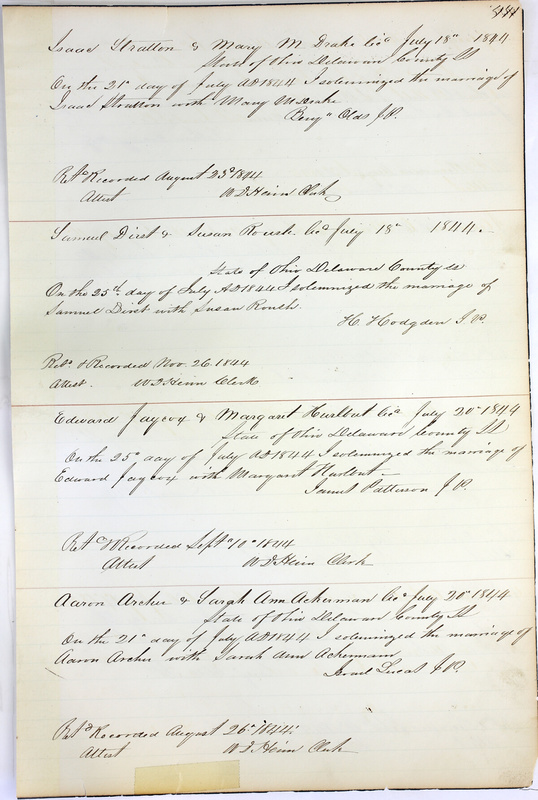 444
Isaac Stratton & Mary M. Drake Lic^d July 18" 1844
State of Ohio Delaware County SS
On the 21" day of July AD 1844 I solemnized the marriage of
Isaac Stratton with Mary M Drake
Benj" Olds J.P.
Ret^d Recorded August 23^d 1844
Attest W D Heim Clerk
Samuel Dirst & Susan Roush. Lic^d July 18" 1844.
State of Ohio Delaware County SS
On the 25th day of July AD 1844 I solemnized the marriage of
Samuel Dirst with Susan Roush.
H. Hodgden J.P.
Ret^d & Recorded Nov. 26. 1844
Attest. W D Heim Clerk
Edward Jaycox & Margaret Hurlbut Lic^d July 20" 1844
State of Ohio Delaware County SS
On the 25" day of July AD 1844 I solemnized the marriage of
Edward Jaycox with Margaret Hurlbut
Patterson J.P.
Ret^d & Recorded Sept" 10" 1844
Attest W D Heim Clerk
Aaron Archer & Sarah Ann Ackerman Lic^d July 20" 1844
State of Ohio Delaware County SS
On the 21" day of July AD 1844 I solemnized the marriage of
Aaron Archer with Sarah Ann Ackerman
Israel Lucas J.P.
Ret^d Recorded August 26" 1844.
Attest W D Heim Clerk